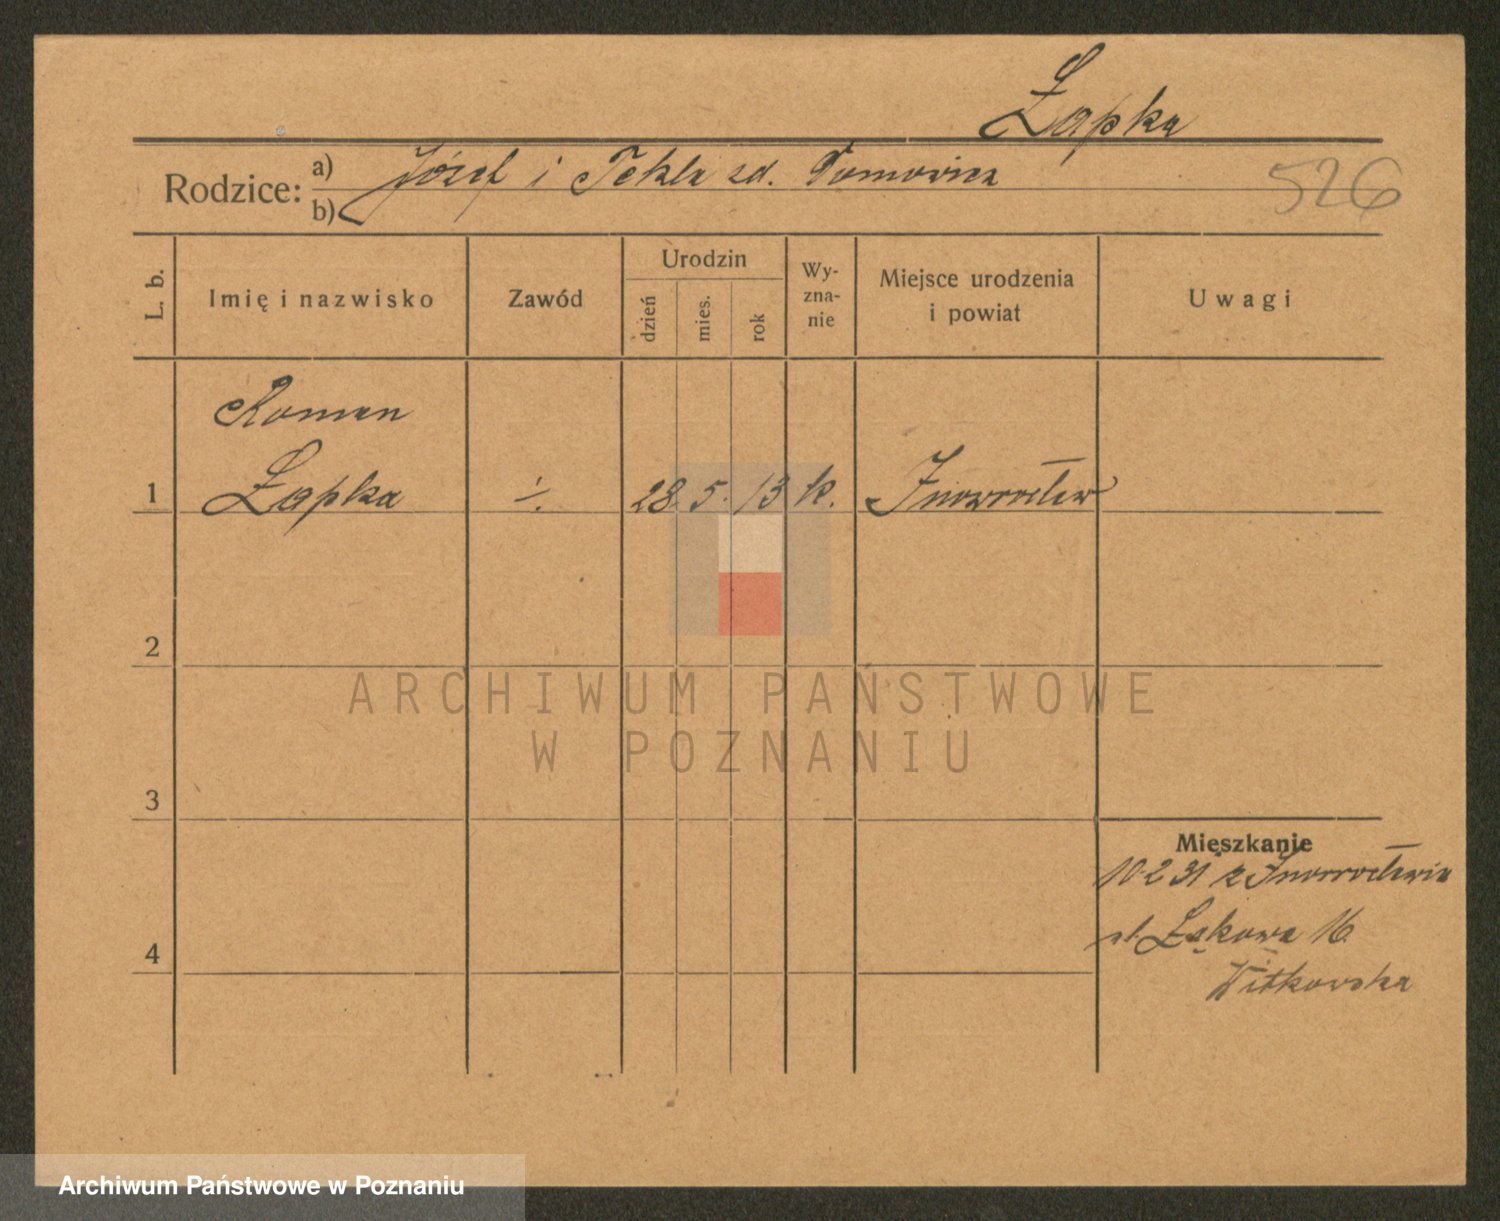 Łapka
Rodzice: a) Józef i Tekla zd. Tomowicz
b)
526
L. b.
Imię i nazwisko
Zawód
Urodzin
dzień
mies.
rok
Wy-
zna-
nie
Miejsce urodzenia
i powiat
Uwagi
Roman
1 Łapka ·/. 28. 5. 13 k. Inowrocław
2
3
4
Mieszkanie
10 2 31 z Inowrocławia
ul. Łąkowa 16
Witkowska
ARCHIWUM PAŃSTWOWE
W POZNANIU
Archiwum Państwowe w Poznaniu